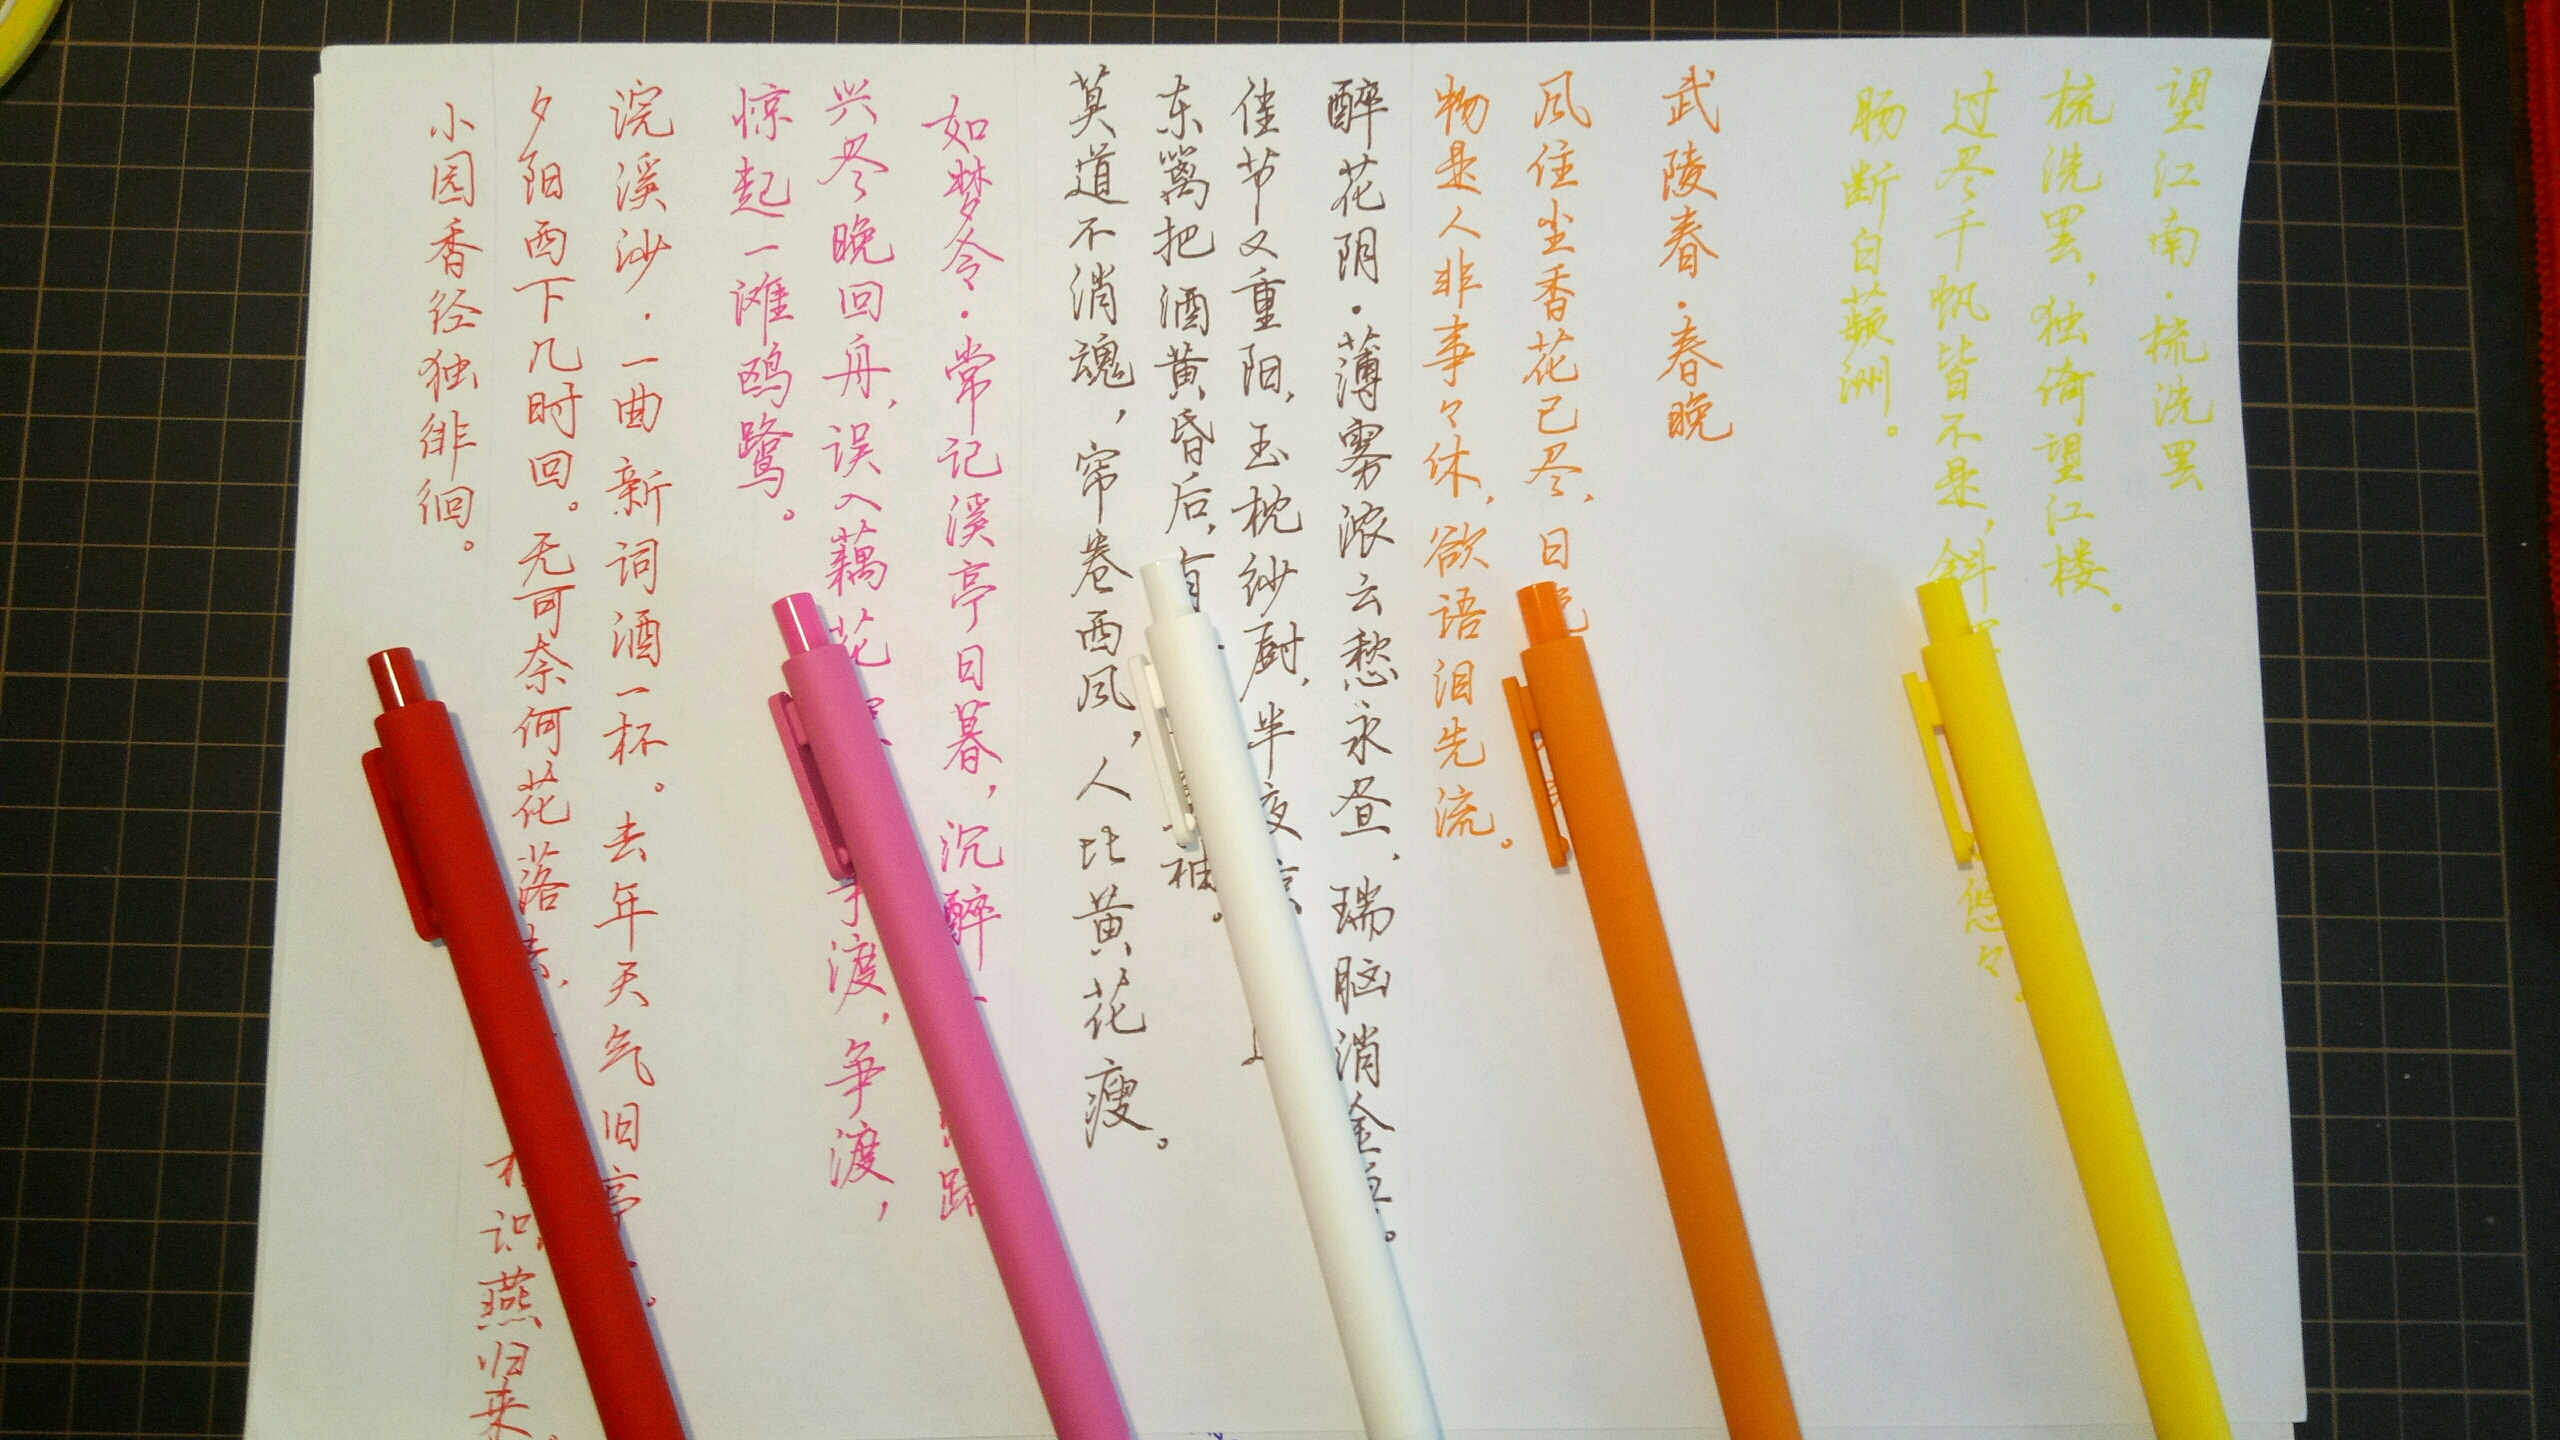 望江南·梳洗罢
梳洗罢，独倚望江楼。
过尽千帆皆不是，斜 悠々。
肠断白蘋洲。
武陵春·春晚
风住尘香花已尽，日
物是人非事々休，欲语泪先流。
醉花阴·薄雾浓云愁永昼，瑞脑消金
佳节又重阳，玉枕纱厨，半夜
东篱把酒黄昏后，有 袖。
莫道不消魂，帘卷西风，人比黄花瘦。
如梦令·常记溪亭日暮，沉醉 路
兴尽晚回舟，误入藕花 争渡，争渡，
惊起一滩鸥鹭。
浣溪沙·一曲新词酒一杯。去年天气旧亭
夕阳西下几时回。无可奈何花落去， 识燕归来。
小园香径独徘徊。